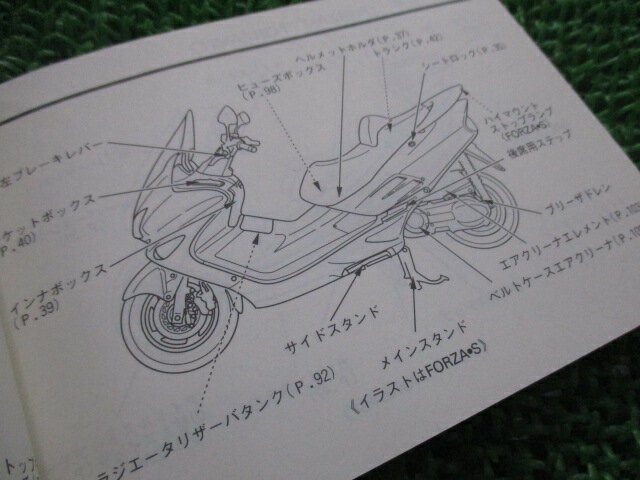 ヘルメットホルダ(P.37)
トランク(P.42)
シートロック(P.35)
ヒューズボックス
(P.98)
ハイマウント
ストップランプ
(FORZA•S)
後席用ステップ
左ブレーキレバー
ケットボックス
P.40)
インナボックス
(P.39)
ブリーザドレン
エアクリーナエレメント(P.10
ベルトケースエアクリーナ(P.10
サイドスタンド
メインスタンド
《イラストはFORZA•S》
ラジエータリザーバタンク(P.92)
トップ